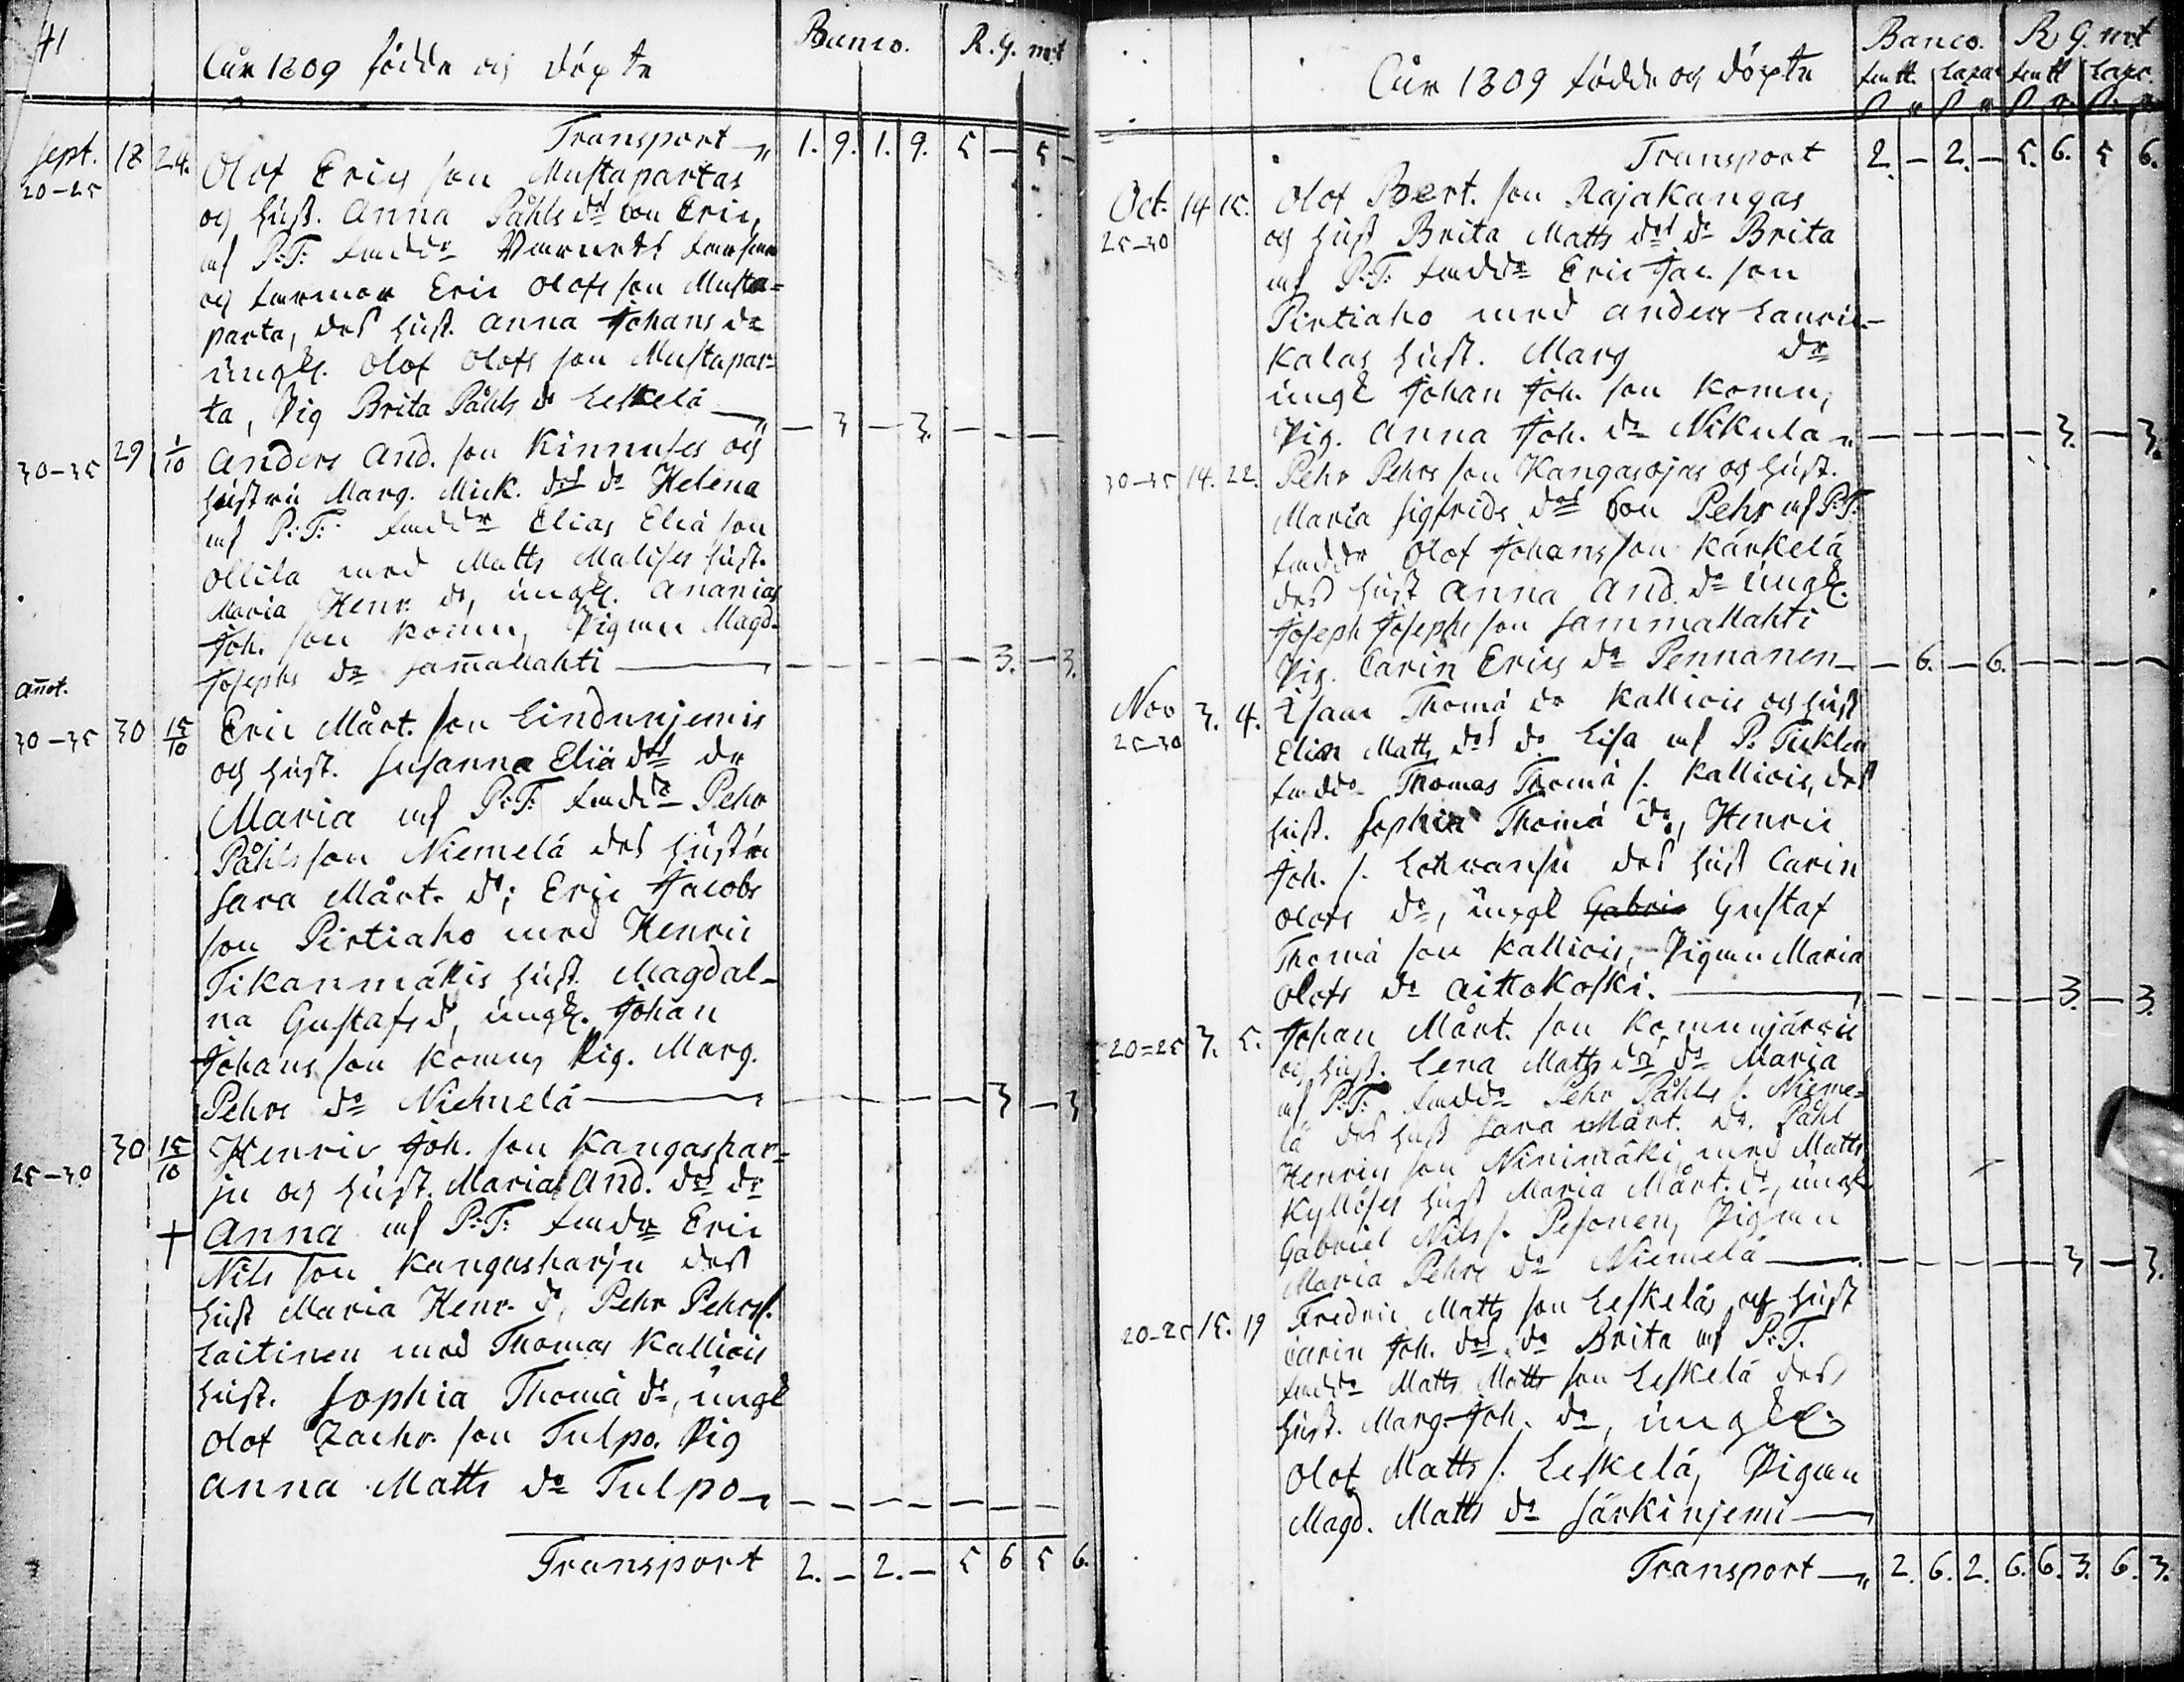 41
Åår 1809 födde och döpte
Banco. R. G. mt
Transport 1. 9. 1. 9. 5 — 5 —
Sept. 18 24. Olof Erics son Mustapartas
20-25 och hust. Anna Påhls dr son Eric,
af P:T: faddr
och farmor Eric Olofs son Musta=
parta, des hust. Anna Johans dr
ungk. Olof Olofs son Mustapar=
ta, Pig Brita Påhls dr Leskelä — 3 — 3. — —
30-35 29 1/10 Anders And. son Kinnuses och
hustru Marg. Mick. drs dr Helena
af P:T: faddr Elias Eliä son
Ollila med Matts Malises hust.
Maria Henr. dr, ungk. Ananias
Joh. son Komu, Pigan Magd.
Josephs dr Samallahti — — — — — 3. — 3.
Annot.
30-35 30 15/10 Eric Mårt. son Lindunjemis
och hust. Susanna Eliä drs dr
Maria af P:T: faddr Pehr
Påhls son Niemelä des hustru
Sara Mårt. dr; Eric Jacobs
son Pirtiaho med Henric
Tikanmäkis hust. Magdal-
na Gustafs dr, ungk. Johan
Johans son Komu, Pig. Marg.
Pehrs dr Niemelä — — — — — 3 — 3
25-30 30 15/10 Henric Joh. son Kangashar=
ju och hust. Maria And. drs dr
+ Anna af P:T: faddr Eric
Nils son Kangasharju des
hust Maria Henr. dr, Pehr Pehrs s.
Laitinen med Thomas Kallicis
hust. Sophia Thomä dr, ungk
Olof Zachr. son Tulpo. Pig
Anna Matts dr Tulpo — — — — — — —
Transport 2. — 2. — 5 6 5 6.
Åår 1809 födde och döpte
Banco. R G. mt
Transport 2. — 2. — 5. 6. 5 6.
Oct. 14 15. Olof Bert. son Rajakangas
25-30 och hust Brita Matts drs dr Brita
af P:T: faddr Eric Jac. son
Pirtiaho med Anders Lauri-
kalas hust. Marg dr
ungk Johan Joh. son Komu,
Pig. Anna Joh. dr Nikula — — — — — 3. — 3.
30-35 14. 22. Pehr Pehrs son Kangasojas och hust.
Maria Sigfrids drs son Pehr af P:T:
faddr Olof Johans son Kärkelä
des hust Anna And. dr ungk.
Joseph Josephs son Sammallahti
Pig. Carin Erics dr Pennanen — — 6. — 6. — — — —
Nov 3. 4. Isaac Thomä dr Kallicis och hust
25-30 Elin Matts drs dr Lisa af P.
faddr Thomas Thomä s. Kallicis, des
hust. Sophia Thomä dr, Henric
Joh. s. des hust Carin
Olofs dr, ungk Gabrie Gustaf
Thomä son Kallicis, Pigan Maria
Olofs dr Aittokoski. — — — — — 3. — 3.
20=25 3. 5. Johan Mårt. son Komunjärvis
och hust. Lena Matts drs dr Maria
af P:T: faddr Pehr Påhls s. Nieme=
lä des hust Sara Mårt. dr. Påhl
Henrics son Ninimäki med Matts
Kyllöses hust Maria Mårt. dr, ungk
Gabriel Nils s. Pesonen, Pigan
Maria Pehrs dr Niemelä — — — — — 3 — 3.
20-25 15. 19 Fredric Matts son Leskeläs och hust
Carin Joh. drs dr Brita af P:T.
faddr Matts Matts son Leskelä des
hust. Marg. Joh. dr, ungk.
Olof Matts s. Leskelä, Pigan
Magd. Matts dr Särkinjemi
Transport 2. 6. 2. 6. 6. 3. 6. 3.